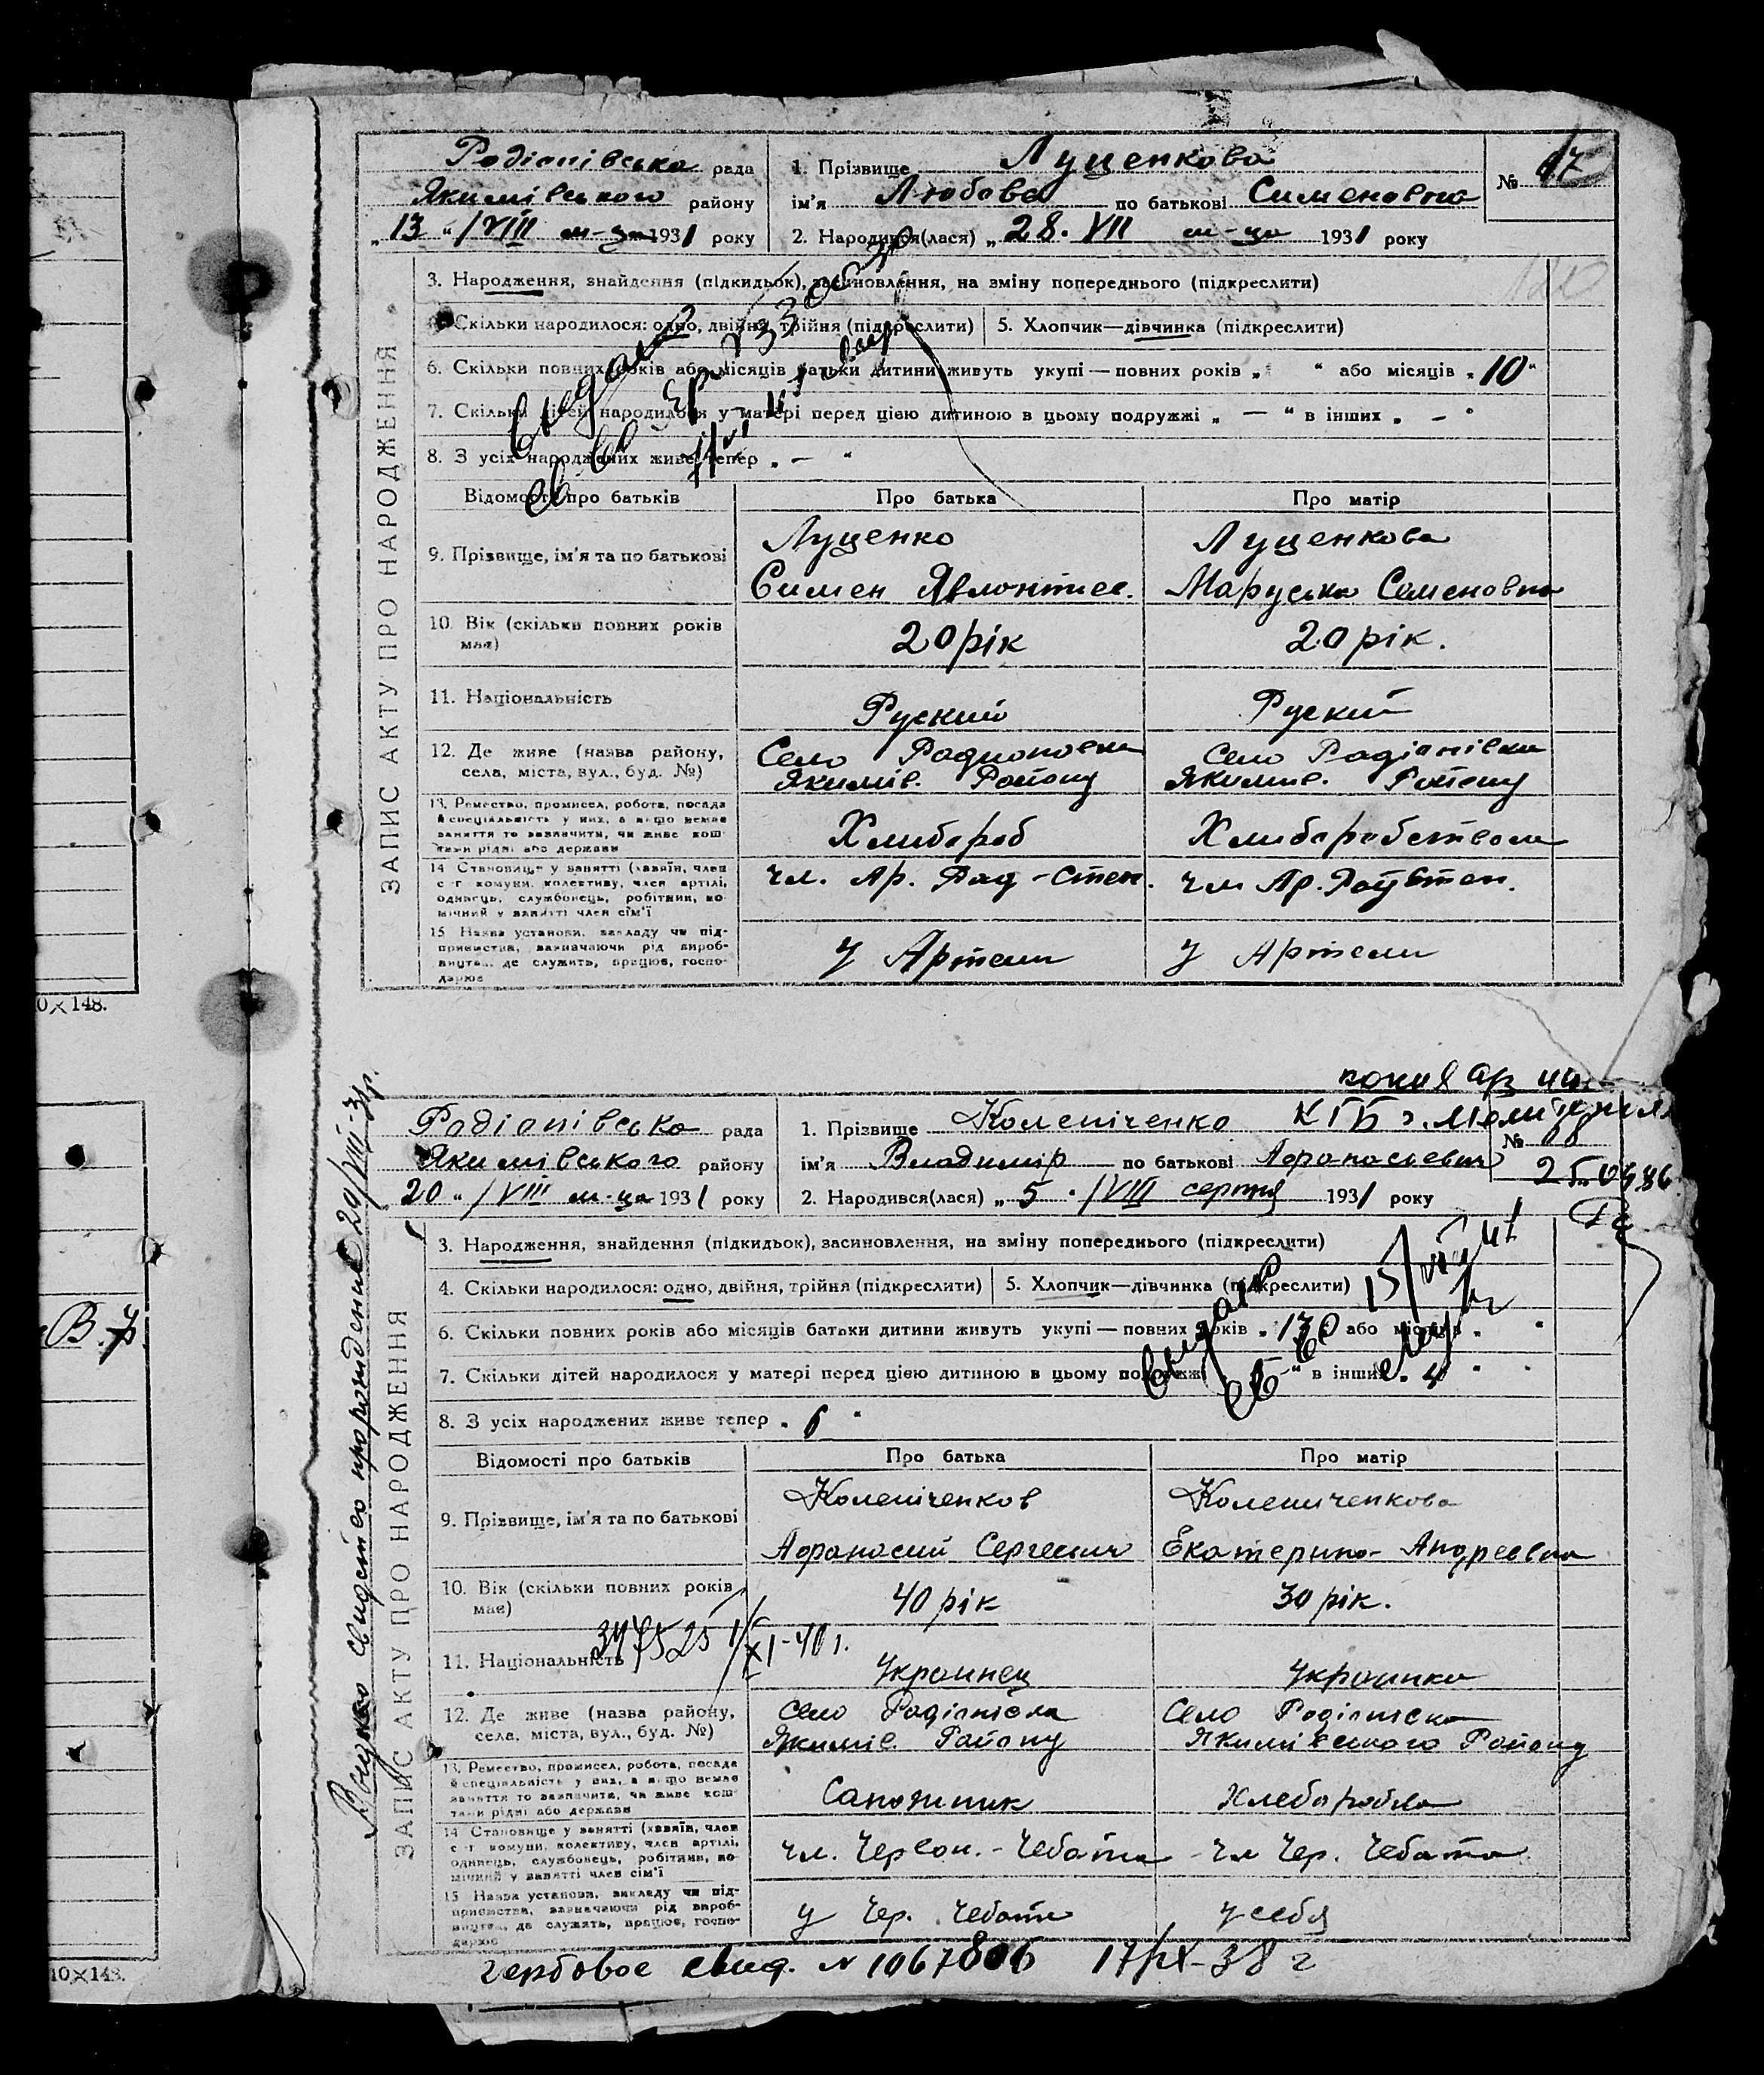 Родіонівська рада
Якимівського району
„13“ /VIII м-ця 1931 року
1. Прізвище Луценкова
ім'я Любова по батькові Сименовна
2. Народився(лася) „28. VII м-ця 1931 року
№ 17
ЗАПИС АКТУ ПРО НАРОДЖЕННЯ
3. Народження, знайдення (підкидьок), засиновлення, на зміну попереднього (підкреслити)
4. Скільки народилося: одно, двійня, трійня (підкреслити) 5. Хлопчик—дівчинка (підкреслити)
6. Скільки повних років або місяців батьки дитини живуть укупі — повних років „ “ або місяців „10“
7. Скільки дітей народилося у матері перед цією дитиною в цьому подружжі „ — “ в інших „ — “
8. З усіх народжених живе тепер „ — “
Відомості про батьків Про батька Про матір
9. Прізвище, ім'я та по батькові
Луценко Луценкова
Симен Явлонтиев. Маруська Семеновна
10. Вік (скільки повних років має) 20 рік 20 рік.
11. Національність Руский Руский
12. Де живе (назва району, села, міста, вул., буд. №)
Село Радионовка Село Радіонівка
Якимів. Району Якимив. Району
13. Ремество, промисел, робота, посада й спеціальність у них, а якщо немає заняття то зазначити, чи живе коштами рідні або держави
Хлибороб Хлиборобством
14. Становище у занятті (хазяїн, член с.-г. комуни, колективу, член артілі, одинець, службовець, робітник, помічний у занятті член сім'ї
чл. Ар. Рад-Степ. чл. Ар. Рад Степ.
15. Назва установи, закладу чи підприємства, зазначаючи рід виробництва, де служить, працює, господарює
У Артели У Артели
0×148.
копия
КГБ г. Мелитополя
25.04.86
Родіонівська рада
Якимівського району
20 “ /VIII м-ця 1931 року
1. Прізвище Колепіченко
ім'я Владимір по батькові Афонасьевич
2. Народився(лася) „5 “ /VIII серпня 1931 року
№
ЗАПИС АКТУ ПРО НАРОДЖЕННЯ
3. Народження, знайдення (підкидьок), засиновлення, на зміну попереднього (підкреслити)
4. Скільки народилося: одно, двійня, трійня (підкреслити) 5. Хлопчик—дівчинка (підкреслити)
6. Скільки повних років або місяців батьки дитини живуть укупі — повних років або місяців „ “
7. Скільки дітей народилося у матері перед цією дитиною в цьому подружжі в інших
8. З усіх народжених живе тепер „ 6 “
Відомості про батьків Про батька Про матір
9. Прізвище, ім'я та по батькові
Колепіченков Колепиченкова
Афонасий Сергеевич Екатерина Андреевна
10. Вік (скільки повних років має) 40 рік 30 рік.
11. Національність Украинец Украинка
12. Де живе (назва району, села, міста, вул., буд. №)
Село Радіонівка Село Радіонівка
Якимів. Району Якимівського Району
13. Ремество, промисел, робота, посада й спеціальність у них, а якщо немає заняття то зазначити, чи живе коштами рідні або держави
Сапожник Хлебороблa
14. Становище у занятті (хазяїн, член с.-г. комуни, колективу, член артілі, одинець, службовець, робітник, помічний у занятті член сім'ї
чл. Червон. - Чебота чл Чер. Чебота
15. Назва установи, закладу чи підприємства, зазначаючи рід виробництва, де служить, працює, господарює
у Чер. Чеботи у себя
гербовое свид. № 1067806 17/IX-38 г
10×148.